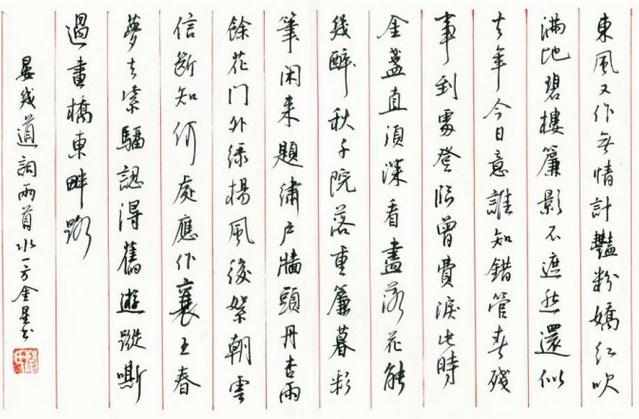 東風又作無情計豔粉嬌紅吹
滿地碧樓簾影不遮愁還似
去年今日意誰知錯管春殘
事到處登臨曾費淚此時
金盞直須深看盡落花能
幾醉秋千院落重簾暮彩
筆閑來題繡戶牆頭丹杏雨
餘花門外綠楊風後絮朝雲
信斷知何處應作襄王春
夢去紫騮認得舊遊蹤嘶
過畫橋東畔路
晏幾道詞兩首水一方金星書